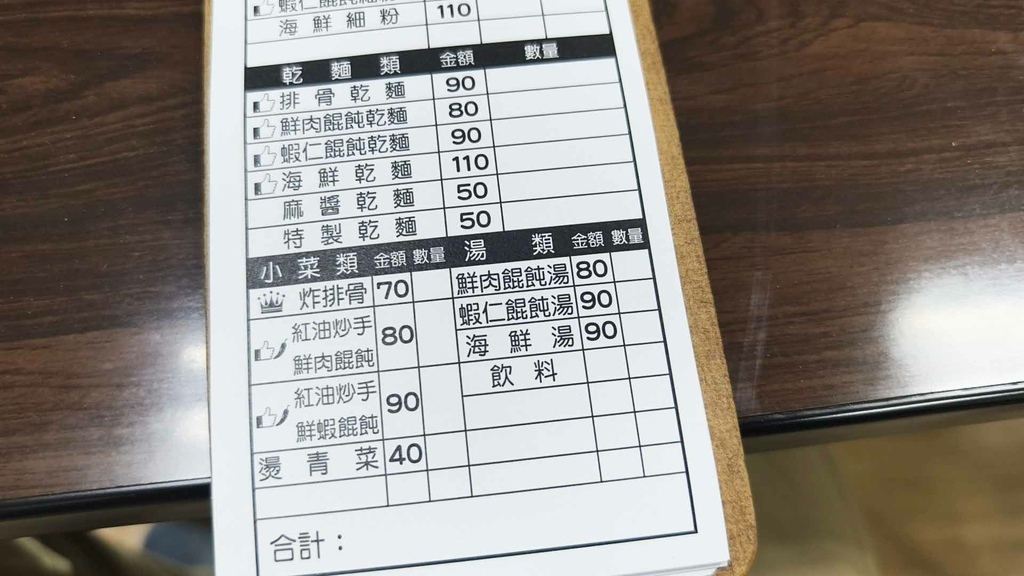 蝦仁餛飩細粉
海鮮細粉 110
乾麵類 金額 數量
排骨乾麵 90
鮮肉餛飩乾麵 80
蝦仁餛飩乾麵 90
海鮮乾麵 110
麻醬乾麵 50
特製乾麵 50
小菜類 金額 數量 湯類 金額 數量
炸排骨 70 鮮肉餛飩湯 80
紅油炒手 鮮肉餛飩 80 蝦仁餛飩湯 90
海鮮湯 90
飲料
紅油炒手 鮮蝦餛飩 90
燙青菜 40
合計：